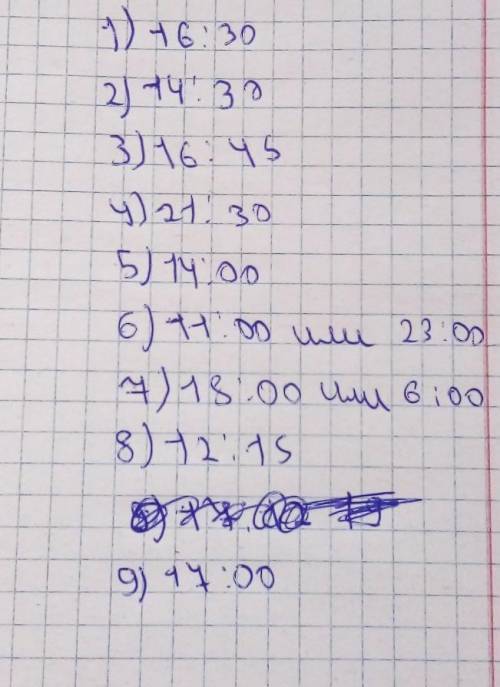 1) 16:30
2) 14:30
3) 16:45
4) 21:30
5) 14:00
6) 11:00 или 23:00
7) 18:00 или 6:00
8) 12:15
9) 17:00